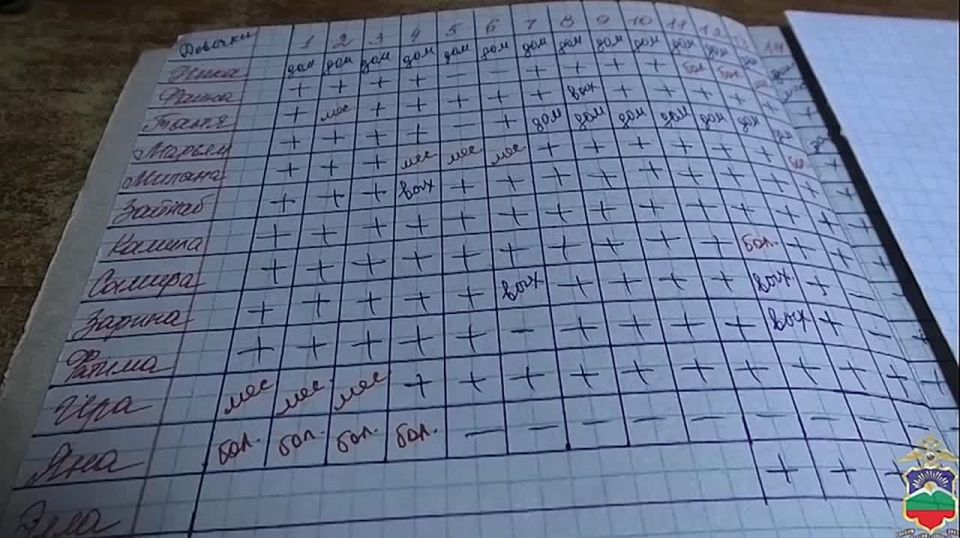 Девочки 1 2 3 4 5 6 7 8 9 10 11 12 13 14
дом дом дом дом дом дом дом дом дом дом дом дом
Фаина + + + + − − + + + + бол. бол.
Таня + мес + + + + + вых + + + + +
Марьям + + + + − + дом дом дом дом дом дом дом
Милана + + + мес мес мес + + + + + + + бол.
Зайнаб + + + вых + + + + + + + + + +
Камила + + + + + + + + + + + + + +
Самира + + + + + + + + + + бол. + + −
Зарина + + + + + вых + + + + вых + − −
Фатима + + + + + − + + + + вых + − −
Ира мес мес мес + + + + + + + + + + +
Яна бол. бол. бол. бол. − − − − − − − − −
Элла + + +